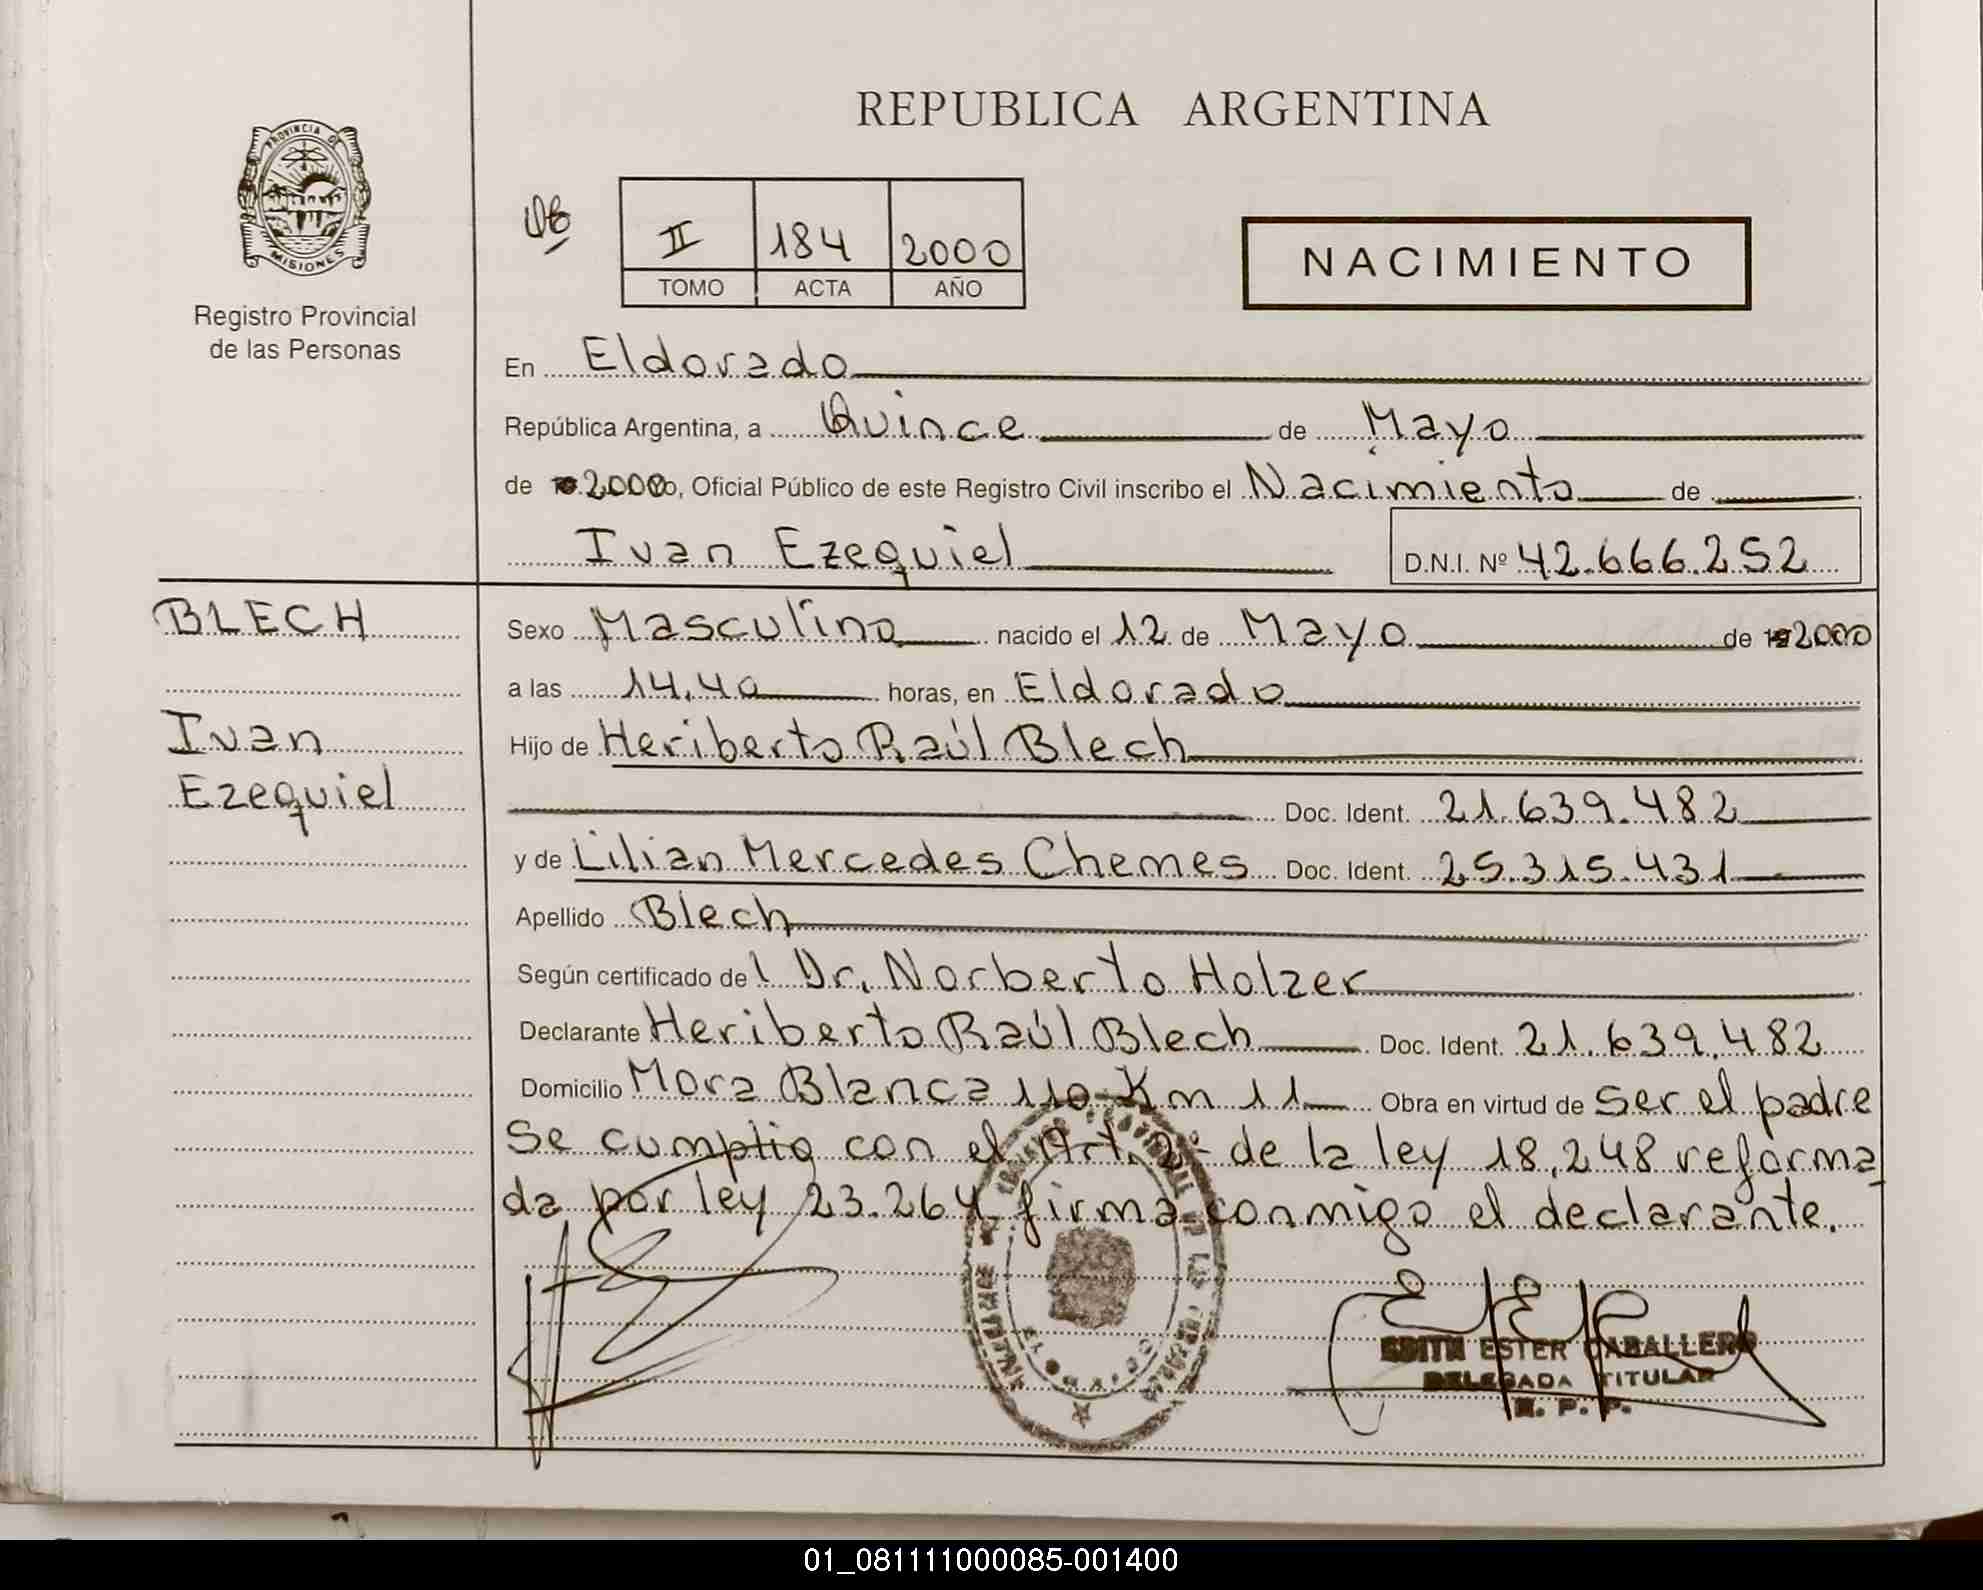 REPUBLICA ARGENTINA
PROVINCIA DE
MISIONES
Registro Provincial
de las Personas
II 184 2000
TOMO ACTA AÑO
NACIMIENTO
En Eldorado
República Argentina, a Quince de Mayo
de 2000 yo, Oficial Público de este Registro Civil inscribo el Nacimiento de
Ivan Ezequiel D.N.I. Nº 42.666.252
BLECH
Ivan
Ezequiel
Sexo Masculino nacido el 12 de Mayo de 2000
a las 14.40 horas, en Eldorado
Hijo de Heriberto Raúl Blech
Doc. Ident. 21.639.482
y de Lilian Mercedes Chemes Doc. Ident. 25.315.431
Apellido Blech
Según certificado del Dr. Norberto Holzer
Declarante Heriberto Raúl Blech Doc. Ident. 21.639.482
Domicilio Mora Blanca 110 Km 11 Obra en virtud de ser el padre
Se cumplio con el Art. 2º de la ley 18.248 reforma
da por ley 23.264 firma conmigo el declarante.
EDITH ESTER CABALLERO
DELEGADA TITULAR
R. P. P.
01_081111000085-001400